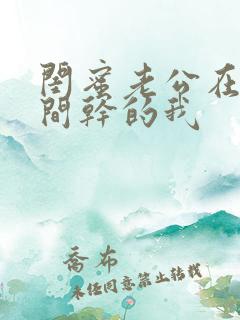 閨蜜老公在
間幹的我
喬布
未经同意禁止转载